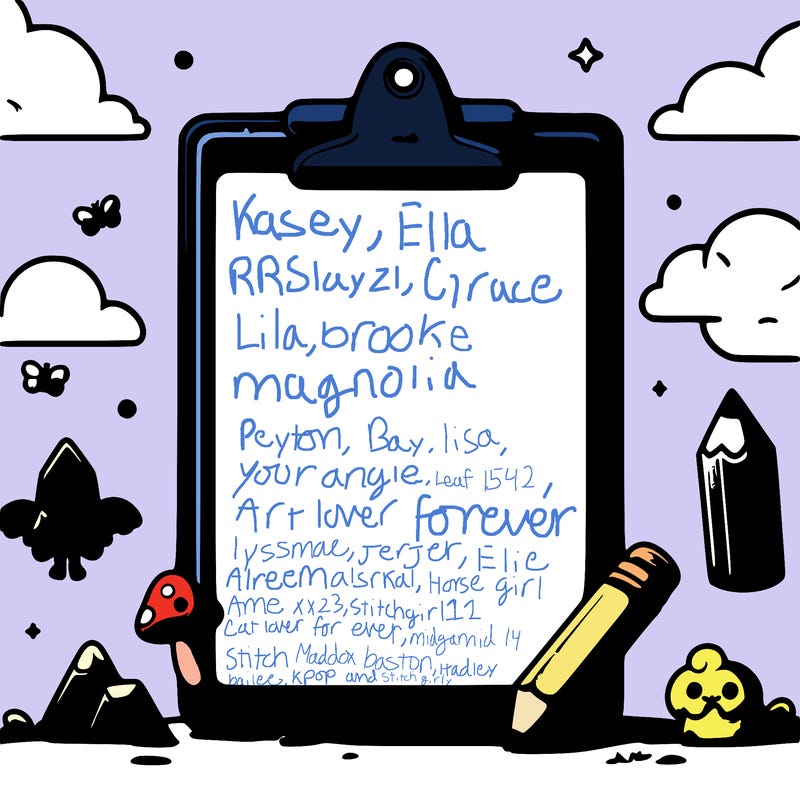 Kasey, Ella
RRSlayz1, Grace
Lila, brooke
magnolia
Peyton, Bay. lisa,
your angle. Leaf 1542,
Art lover forever
lyssmae, Jerjer, Elie
AlreemAlsrkal, Horse girl
Ame xx23, Stitchgirl11
Cat lover for ever, midgamid 14
Stitch Maddox baston, Hadley
bailee, Kpop and Stitch girly